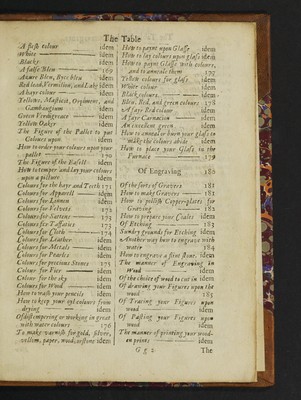 The Table
A flesh colour idem
White idem
Blacke idem
A false Blew 169
Azure Blew, Byce blew idem
Red lead, Vermilion, and Lake idem
A baye colour idem
Yellowes, Masticot, Orpiment, and
Gambugium idem
Green Verdigreace idem
Yellow Oaker idem
The Figure of the Pallet to put
Colours upon idem
How to order your colours upon your
pallet 170
The Figure of the Easell idem
How to temper and lay your colours
upon a picture idem
Colours for the lippes and Teeth 171
Colours for Apparell idem
Colours for Linnen idem
Colours for Velvets 172
Colours for Sattens 173
Colours for Taffaties 173
Colours for Cloth 174
Colours for Leather idem
Colours for Metals idem
Colours for Pearles idem
Colours for precious Stones 175
Colour for Fire idem
Colour for the sky idem
Colours for Wood idem
How to wash your pencils idem
How to keep your oyl colours from
drying idem
Of distempering or working in great
with water colours 176
To make varnish for gold, silver,
vellum, paper, wood, or stone idem
How to paynt upon Glasse idem
How to lay colours upon glasse idem
How to paynt Glasse with colours,
and to anneale them 177
Yellow colours for glasse idem
White colour idem
Black colours idem
Blew, Red, and green colours 178
A fayr Red colour idem
A fayr Carnation idem
An excellent green idem
How to anneal or burn your glass to
make the colours abide idem
How to place your Glass in the
Furnace 179
Of Engraving 180
Of the sorts of Gravers 181
How to make Gravers 181
How to polish Copper-plates for
Graving 182
How to prepare your Coales idem
Of Etching 183
Sundry grounds for Etching idem
Another way how to engrave with
water 184
How to engrave a flint stone idem
The manner of Engraving in
Wood idem
Of the choice of wood to cut in idem
Of drawing your Figures upon the
wood 185
Of Tracing your Figures upon
wood idem
Of Pasting your Figures upon
wood idem
The manner of printing your wood-
en prints idem
G g 2
The